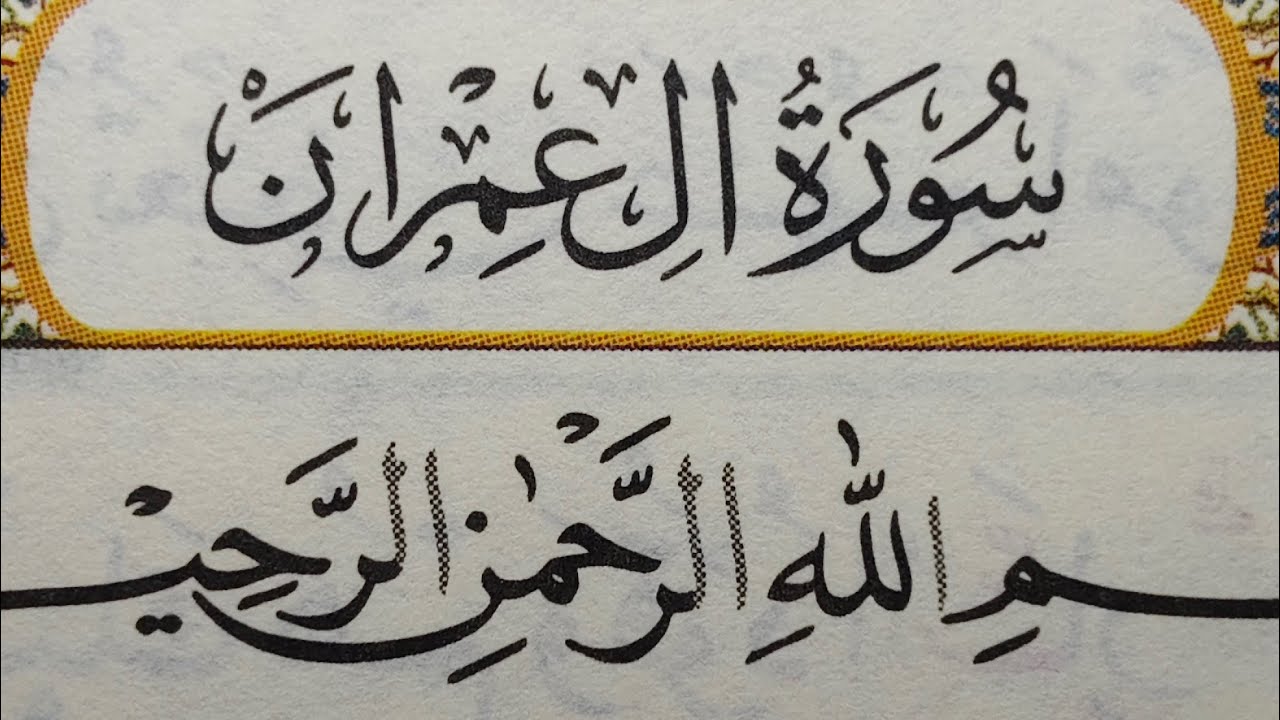 سُورَةُ اٰلِ عِمْرَانَ
ـمِ اللّٰهِ الرَّحْمٰنِ الرَّحِيـ